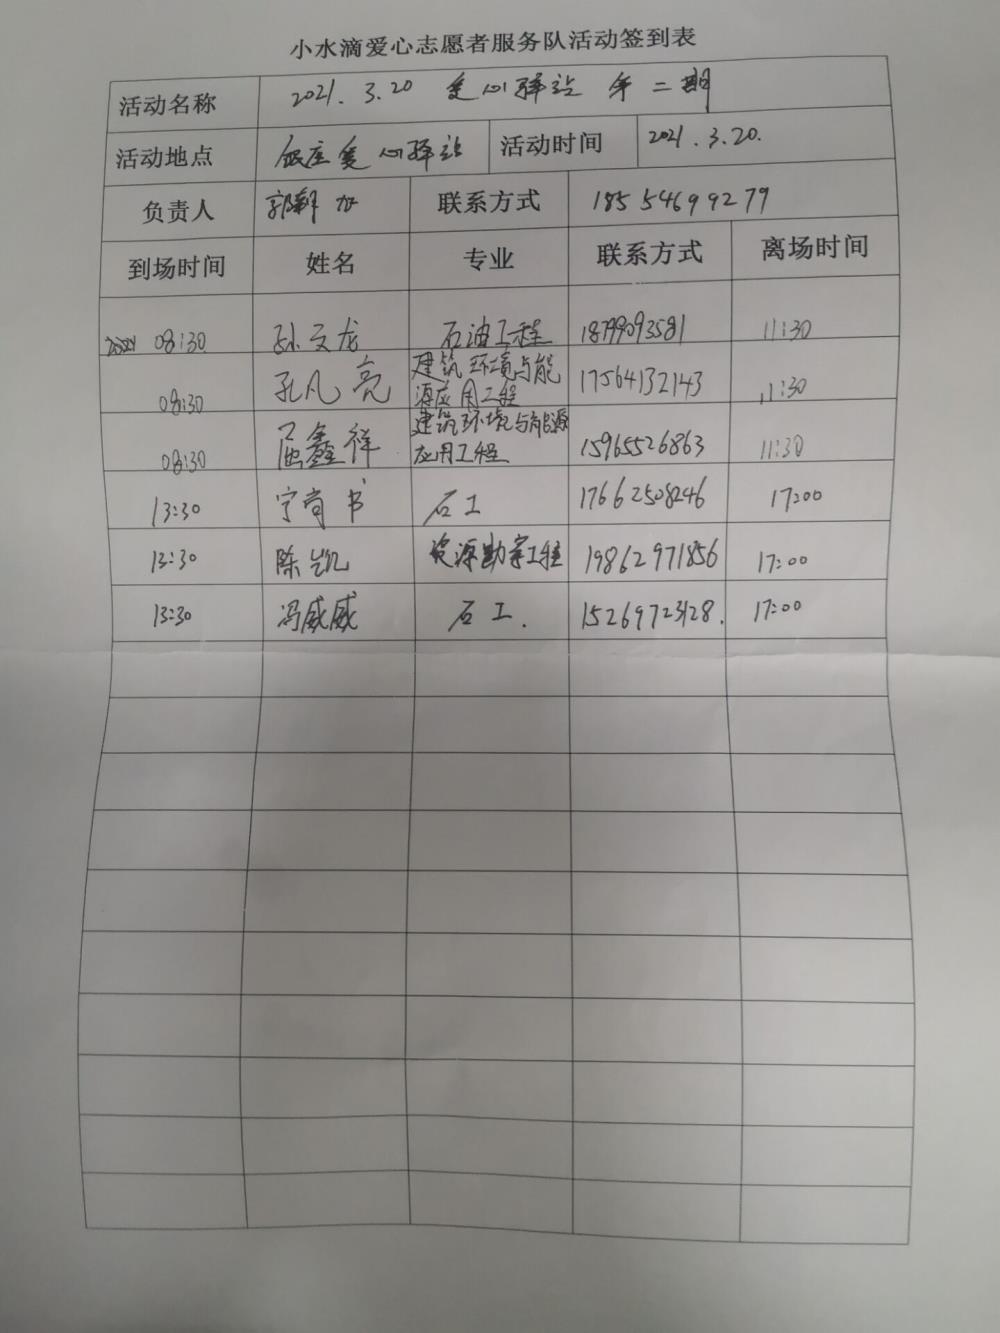 小水滴爱心志愿者服务队活动签到表
活动名称 2021.3.20 爱心驿站 第二期
活动地点 银座爱心驿站 活动时间 2021.3.20.
负责人 郭 联系方式 18554699279
到场时间 姓名 专业 联系方式 离场时间
08:30 孙文龙 石油工程 18799093581 11:30
08:30 孔凡亮 建筑环境与能源应用工程 17564132143 11:30
08:30 屈鑫祥 建筑环境与能源应用工程 15965526863 11:30
13:30 宁尚书 石工 17662508246 17:00
13:30 陈凯 资源勘察工程 19862971856 17:00
13:30 冯威威 石工. 15269723128. 17:00